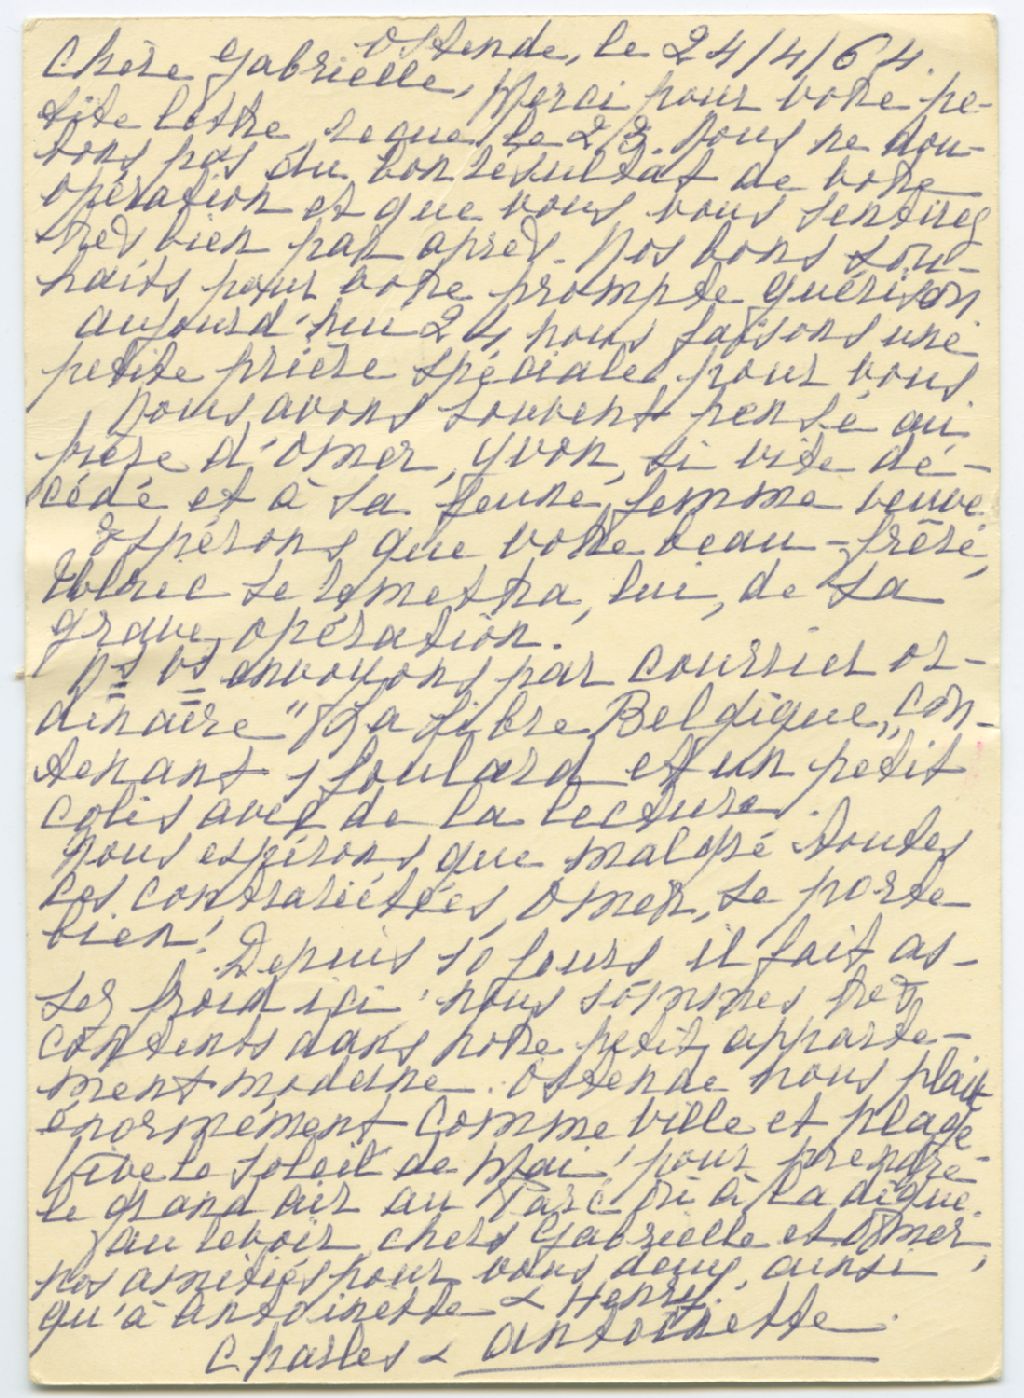 Ostende, le 24/4/64.
Chère Gabrielle, Merci pour votre pe-
tite lettre reçue le 23. Nous ne dou-
tons pas du bon résultat de votre
opération et que vous vous sentirez
très bien par après. Nos bons sou-
haits pour votre prompte guérison
aujourd'hui 24 nous faisons une
petite prière spéciale pour vous
Nous avons souvent pensé au
frère d'Omer, Yvon, si vite dé-
cédé et à sa jeune femme veuve
Espérons que votre beau-frère,
se remettra, lui, de sa
grave opération.
Ns vs envoyons par courrier or-
dinaire "La Libre Belgique" con-
tenant 1 foulard et un petit
colis avec de la lecture.
Nous espérons que malgré toutes
ces contrariétées, Omer, se porte
bien!
Depuis 10 jours il fait as-
sez froid ici: nous sommes très
contents dans notre petit apparte-
ment moderne. Ostende nous plait
énormément comme ville et plage
Vive le soleil de Mai! pour prendre
le grand air au Parc à la digue.
au revoir chers Gabrielle et Omer,
nos amitiés pour vous deux, ainsi
qu'à Antoinette & Henry.
Charles & Antoinette.